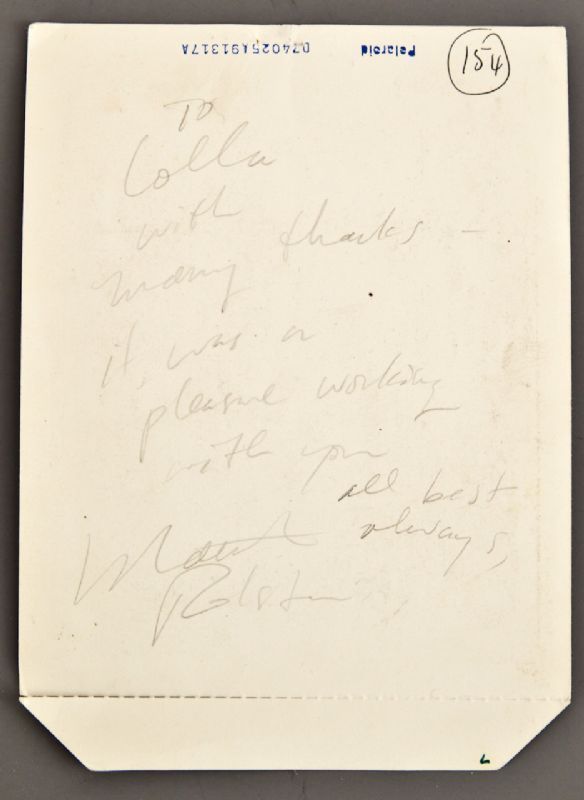 Polaroid D74025A91317A
154
To
Colla
with
many thanks -
it was a
pleasure working
with you
all best
always,